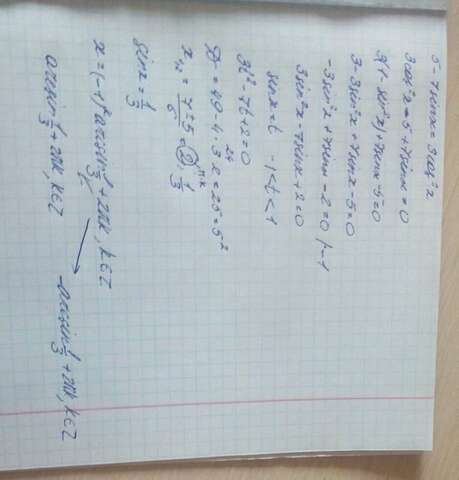 5 - 7sinx = 3cos²x
3cos²x - 5 + 7sinx = 0
3(1 - sin²x) + 7sinx - 5 = 0
3 - 3sin²x + 7sinx - 5 = 0
-3sin²x + 7sinx - 2 = 0 / -1
3sin²x - 7sinx + 2 = 0
sinx = t -1 < t < 1
3t² - 7t + 2 = 0
D = 49 - 4·3·2 = 25 = 5²
24
x₁,₂ = 7±5/6 = 2; 1/3
п.к
sinx = 1/3
x = (-1)ᵏ arcsin 1/3 + 2πk, k∈Z
arcsin 1/3 + 2πk, k∈Z
-arcsin 1/3 + 2πk, k∈Z